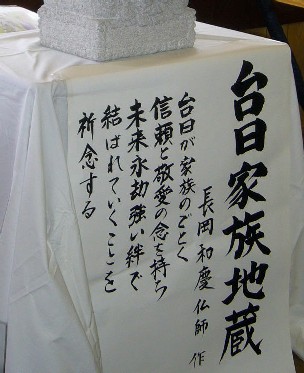 台日家族地蔵
長岡和慶仏師 作
台日が家族のごとく
信頼と敬愛の念を持ち
未来永劫強い絆で
結ばれていくことを
祈念する